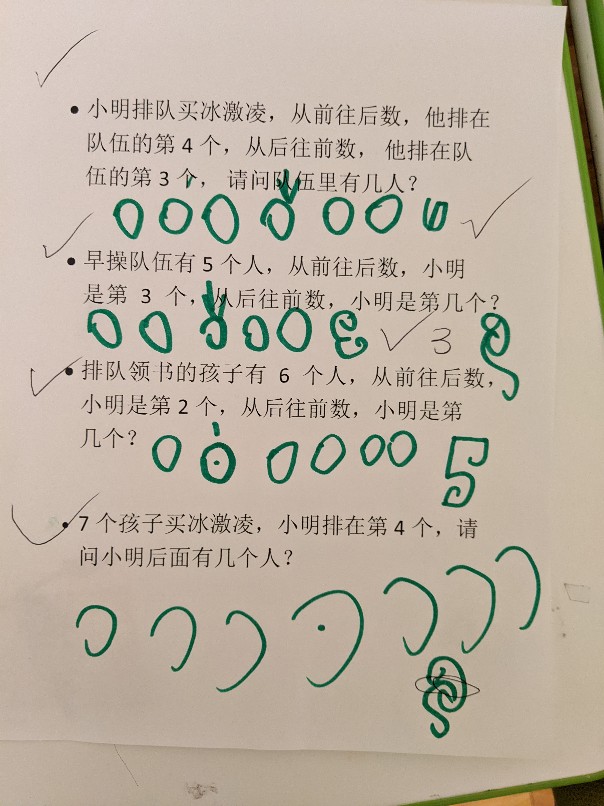 • 小明排队买冰激凌，从前往后数，他排在
队伍的第 4 个，从后往前数， 他排在队
伍的第 3 个， 请问队伍里有几人？
• 早操队伍有 5 个人，从前往后数，小明
是第 3 个，从后往前数，小明是第几个？
3
• 排队领书的孩子有 6 个人，从前往后数，
小明是第 2 个，从后往前数，小明是第
几个？
5
• 7 个孩子买冰激凌，小明排在第 4 个，请
问小明后面有几个人？